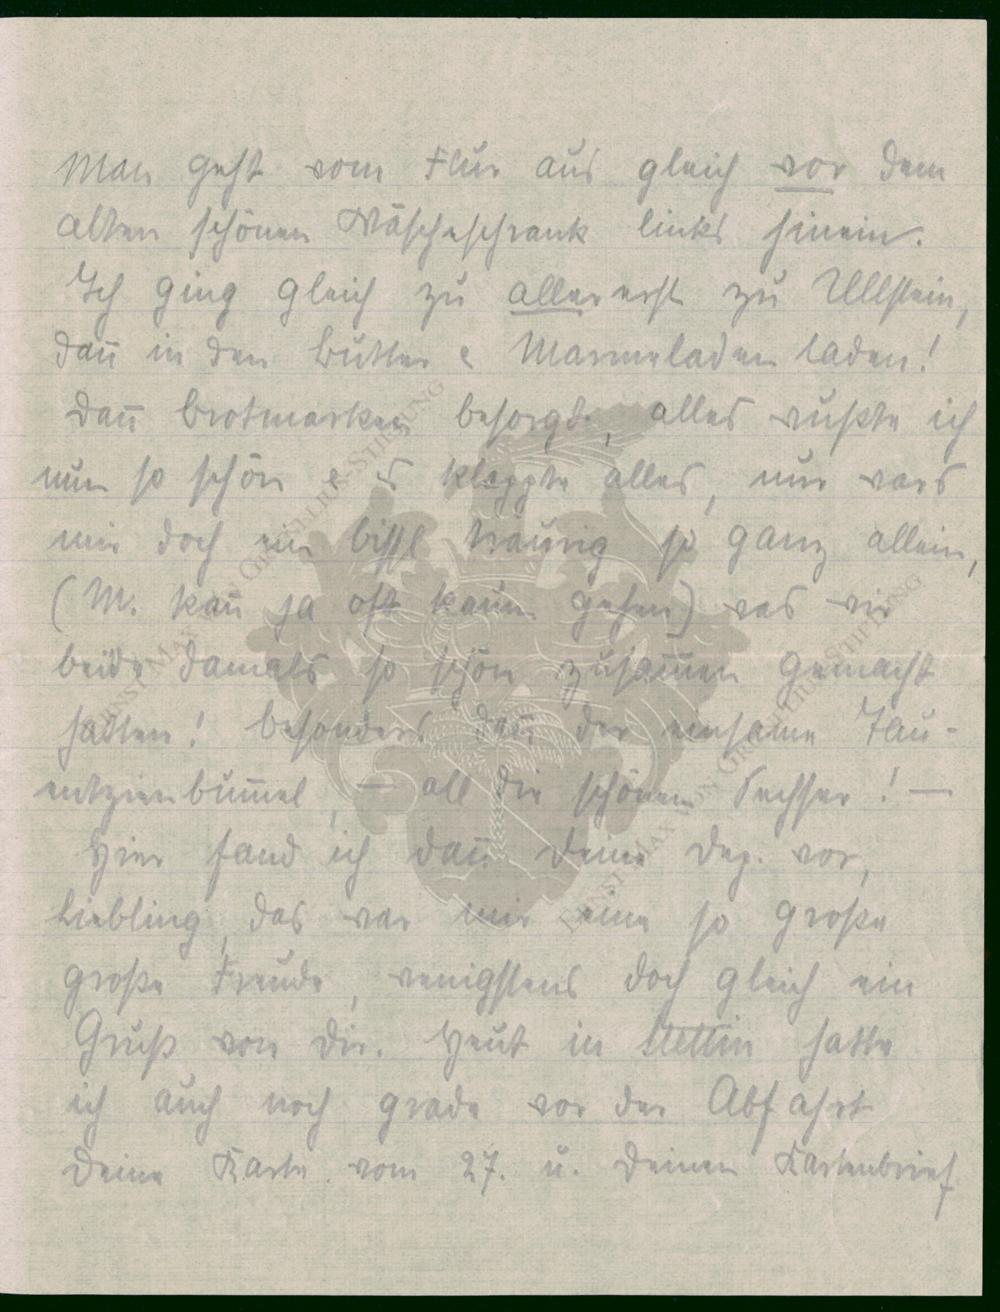 Man geht vom Flur aus gleich vor dem
alten schönen Wäscheschrank links hinein.
Ich ging gleich zu allererst zu Ullstein,
dan̄ in den Butter & Marmeladen laden!
Dan̄ Brotmarken besorgt, alles wußte ich
nun so schön & es klappte alles, nur wars
mir doch ein bissl traurig so ganz allein,
(M. kan̄ ja oft kaum gehen) was wir
beide damals so schön zusam̄en gemacht
hatten! besonders dan̄ der einsame Tau-
entzienbum̄el, — all die schönen Sechser! —
Hier fand ich dan̄ Deine Dep. vor,
Liebling, das war mir eine so große
große Freude, wenigstens doch gleich ein
Gruß von Dir. Heut in Stettin hatte
ich auch noch grade vor der Abfahrt
Deine Karte vom 27. u. Deinen Kartenbrief
ERNST MAX VON GRUNELIUS-STIFTUNG
ERNST MAX VON GRUNELIUS-STIFTUNG